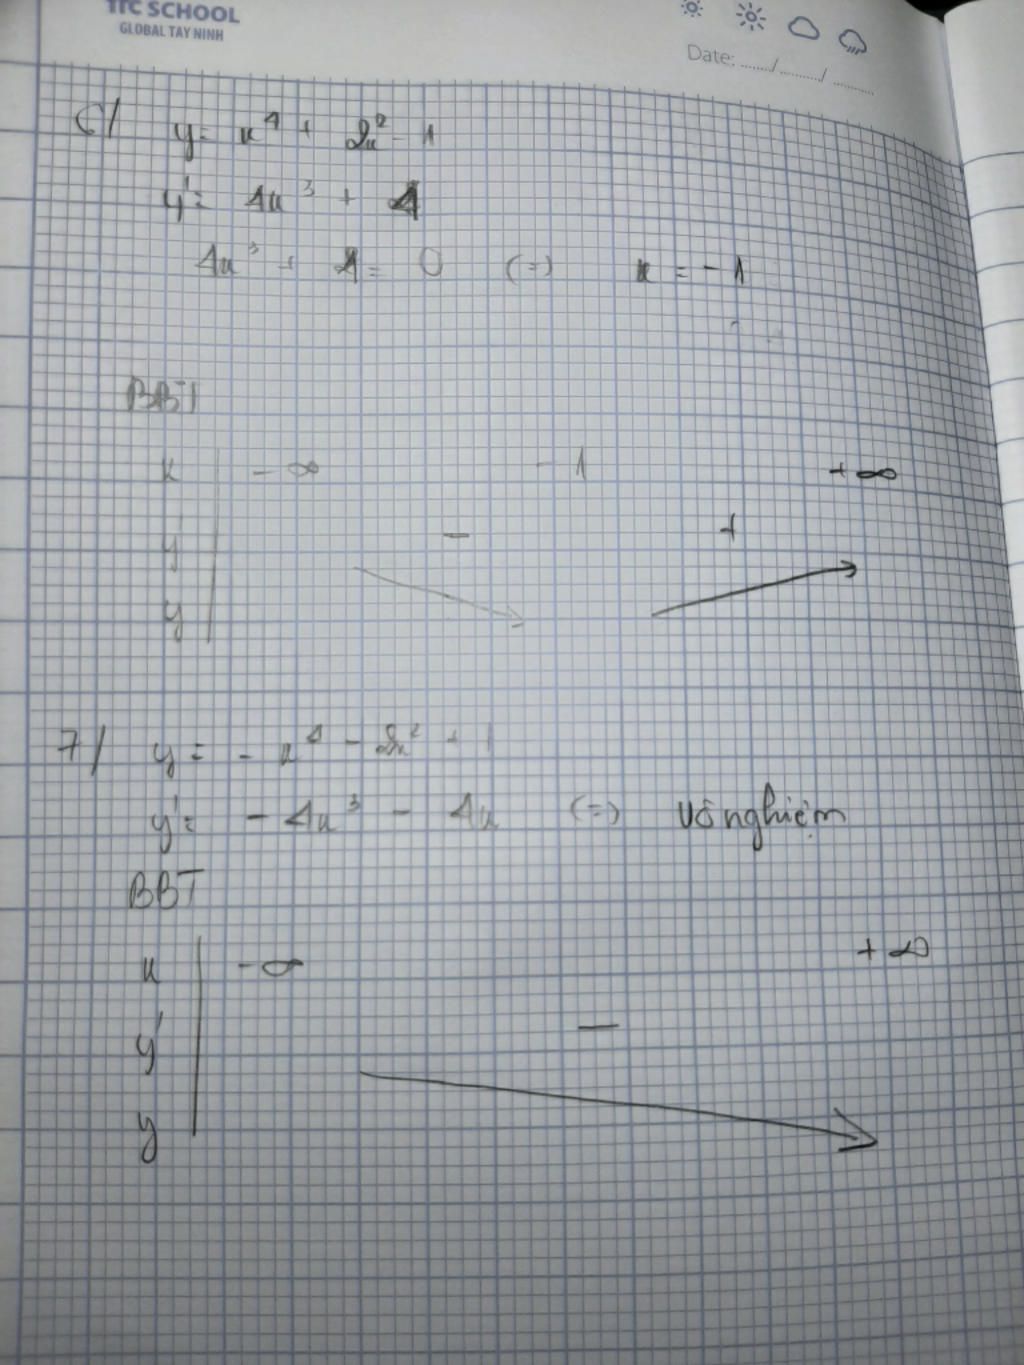 TTC SCHOOL
GLOBAL TAY NINH
Date: ......./........../ ..........
6/ y = x⁴ + 2x² - 1
y' = 4x³ + 4
4x³ + 4 = 0 (=) x = - 1
BBT
x - ∞ - 1 + ∞
y' - +
y
7/ y = - x⁴ - 2x² + 1
y' = - 4x³ - 4x (=) vô nghiệm
BBT
x - ∞ + ∞
y' -
y